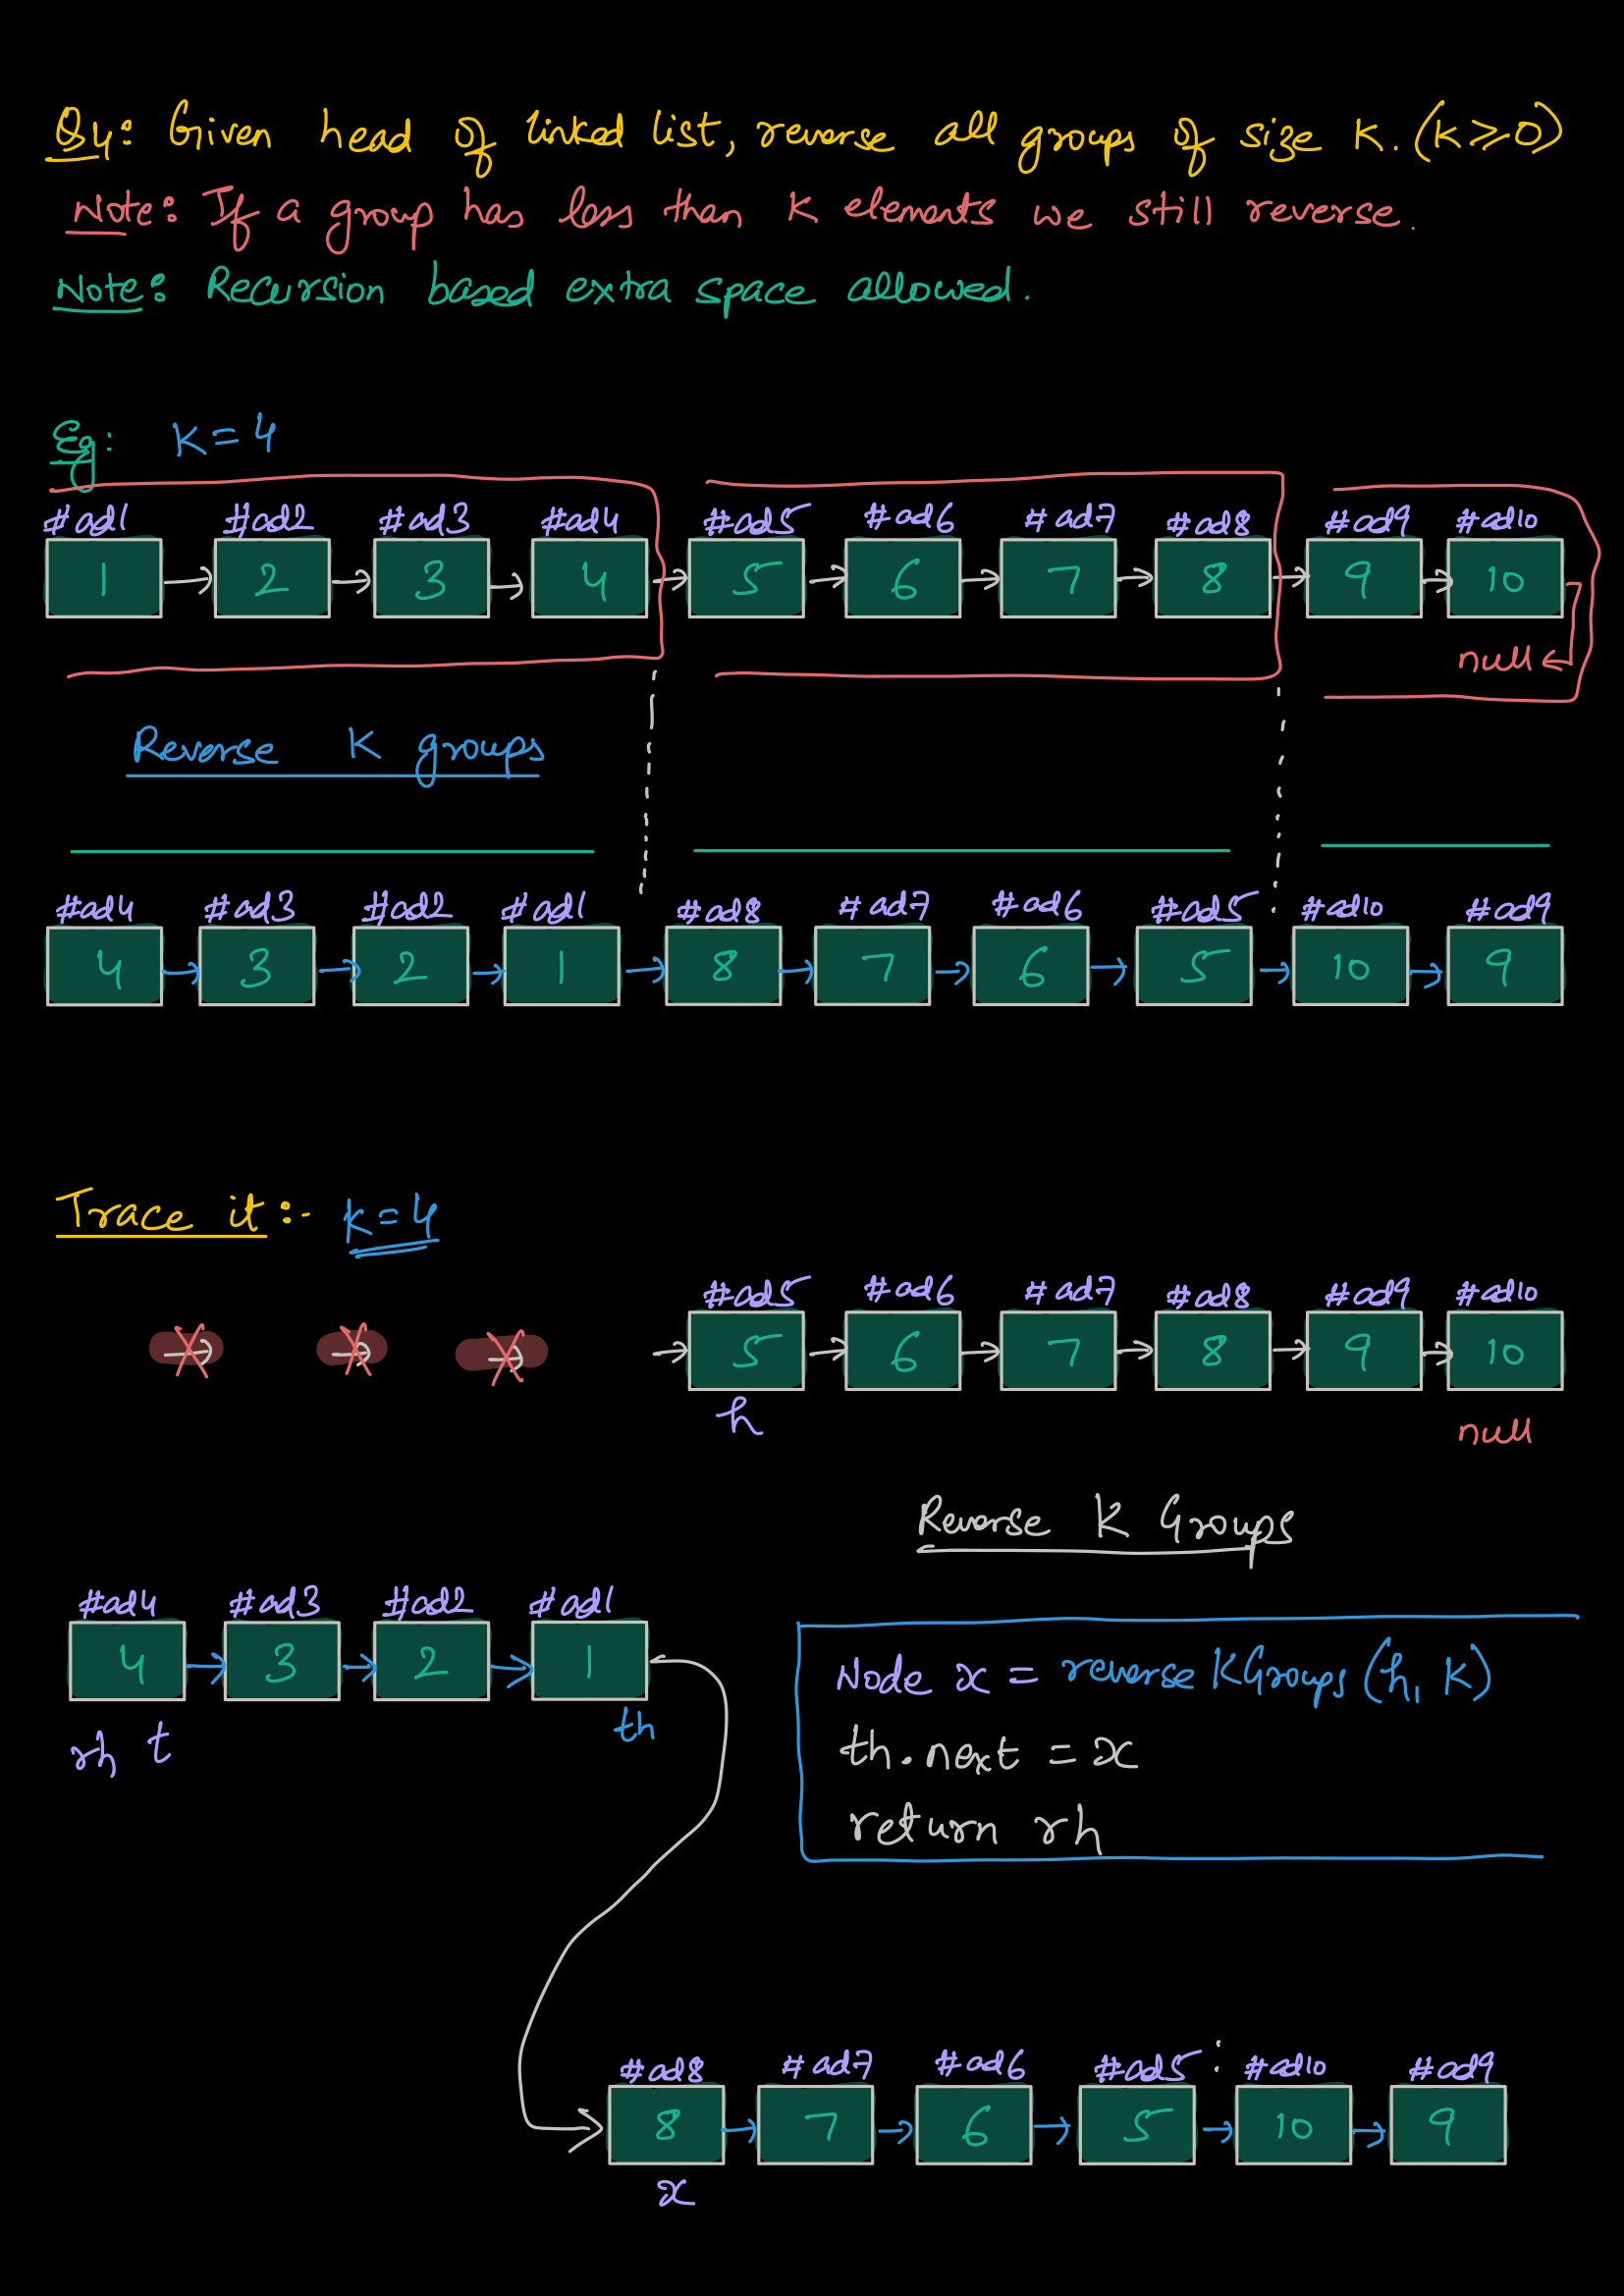 Q4: Given head of linked list, reverse all groups of size K. (K>=0)
Note: If a group has less than K elements we still reverse.
Note: Recursion based extra space allowed.
Eg: K=4
#ad1 #ad2 #ad3 #ad4 #ad5 #ad6 #ad7 #ad8 #ad9 #ad10
1 2 3 4 5 6 7 8 9 10
null
Reverse K groups
#ad4 #ad3 #ad2 #ad1 #ad8 #ad7 #ad6 #ad5 #ad10 #ad9
4 3 2 1 8 7 6 5 10 9
Trace it:- k=4
#ad5 #ad6 #ad7 #ad8 #ad9 #ad10
5 6 7 8 9 10
h
null
Reverse K Groups
#ad4 #ad3 #ad2 #ad1
4 3 2 1
rh t th
Node x = reverse KGroups (h, K)
th.next = x
return rh
#ad8 #ad7 #ad6 #ad5 #ad10 #ad9
8 7 6 5 10 9
x